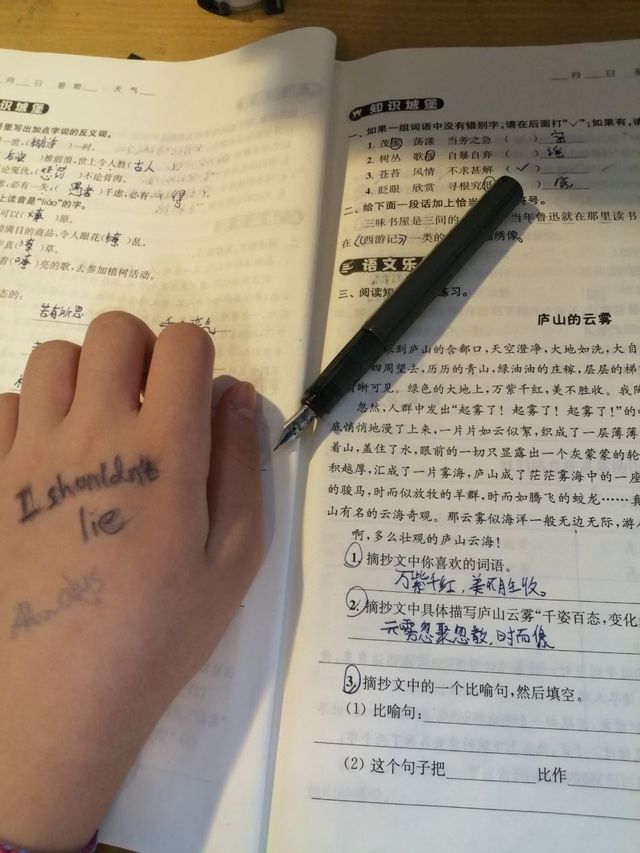 月 日 星期 天气
识城堡
写出加点字词的反义词。
一世,(糊涂)一时。
)推前浪,世上今人胜(古人)
论冤仇,(惩罚)不论骨肉。
必有一失;(愚者)千虑,必有一(得)。
上读音是“liáo”的字。
可以(燎)原。
满目的商品,令人眼花(缭)乱。
真(潦)草。
着(嘹)亮的歌,去参加植树活动。
态的:
若有所思
I shouldn't
lie
Always
月 日
知识城堡
一、如果一组词语中没有错别字,请在后面打“✓”;如果有,请
1. 茂 荡漾 当务之急 ( )
2. 树丛 歌 自暴自弃 ( )
3. 苍苔 风情 不求甚解 (✓)
4. 眨眼 欣赏 寻根究 ( ) 底
二、给下面一段话加上恰当 符号。
三味书屋是三间的 当年鲁迅就在那里读书
在《西游记》一类的 绣像。
语文乐
三、阅读短 练习。
庐山的云雾
来到庐山的含鄱口,天空澄净,大地如洗,大自
四周望去,历历的青山,绿油油的庄稼,层层的梯
清晰可见。绿色的大地上,万紫千红,美不胜收。我陶
忽然,人群中发出“起雾了!起雾了!起雾了!”的
底悄悄地漫了上来,一片片如云似絮,织成了一层薄薄
着山,盖住了水,眼前的一切只显露出一个灰蒙蒙的轮
积越厚,汇成了一片雾海,庐山成了茫茫雾海中的一座
的骏马,时而似放牧的羊群,时而如腾飞的蛟龙……真
山有名的云海奇观。那云雾似海洋一般无边无际,游人
啊,多么壮观的庐山云海!
1. 摘抄文中你喜欢的词语。
万紫千红,美不胜收。
2. 摘抄文中具体描写庐山云雾“千姿百态,变化
云雾忽聚忽散,时而像
3. 摘抄文中的一个比喻句,然后填空。
(1) 比喻句:
(2) 这个句子把 比作